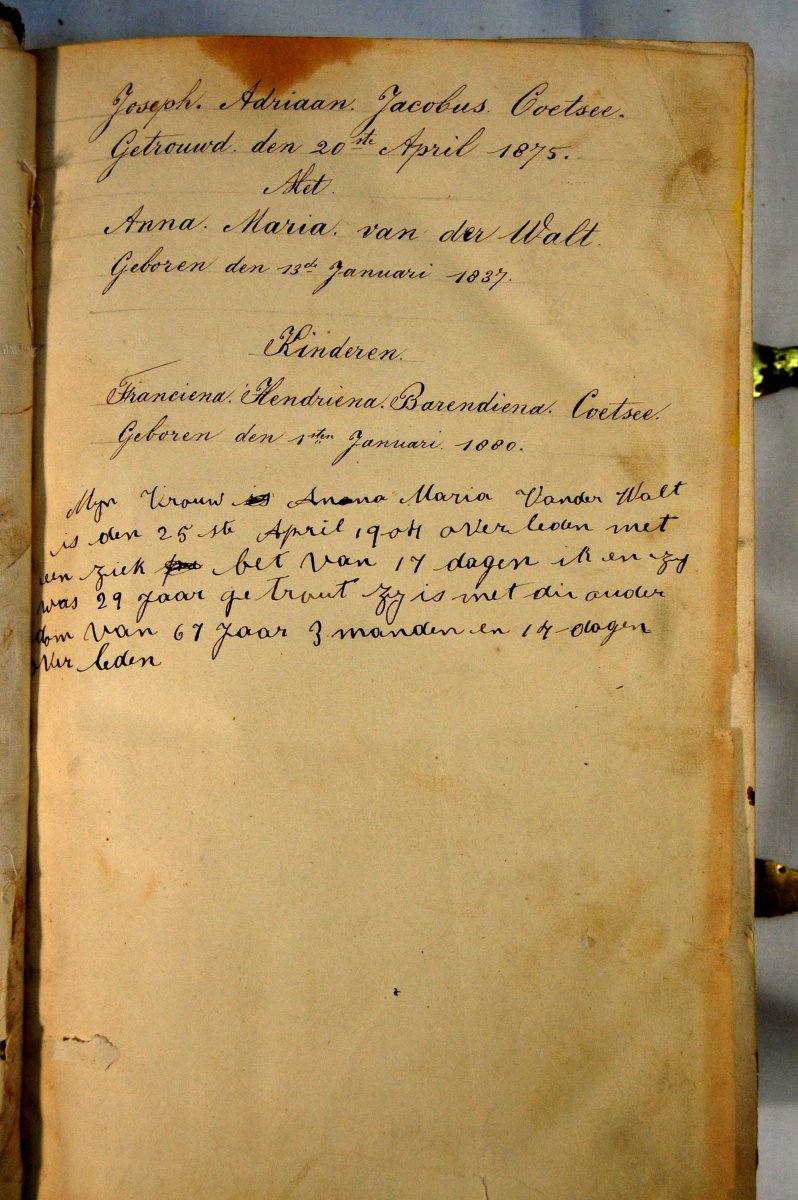 Joseph. Adriaan. Jacobus. Coetsee.
Getrouwd. den 20ste April 1875.
Met.
Anna. Maria. van der Walt.
Geboren den 13de Januari 1837.
Kinderen.
Franciena. Hendriena. Barendiena. Coetsee.
Geboren den 1sten Januari. 1880.
Myn Vrouw is Anana Maria Vander Walt
is den 25 ste April 1904 over leden met
een ziek bet van 17 dagen ik en zy
was 29 Jaar ge trout zy is met die ouder
dom van 67 Jaar 3 manden en 14 dagen
over leden